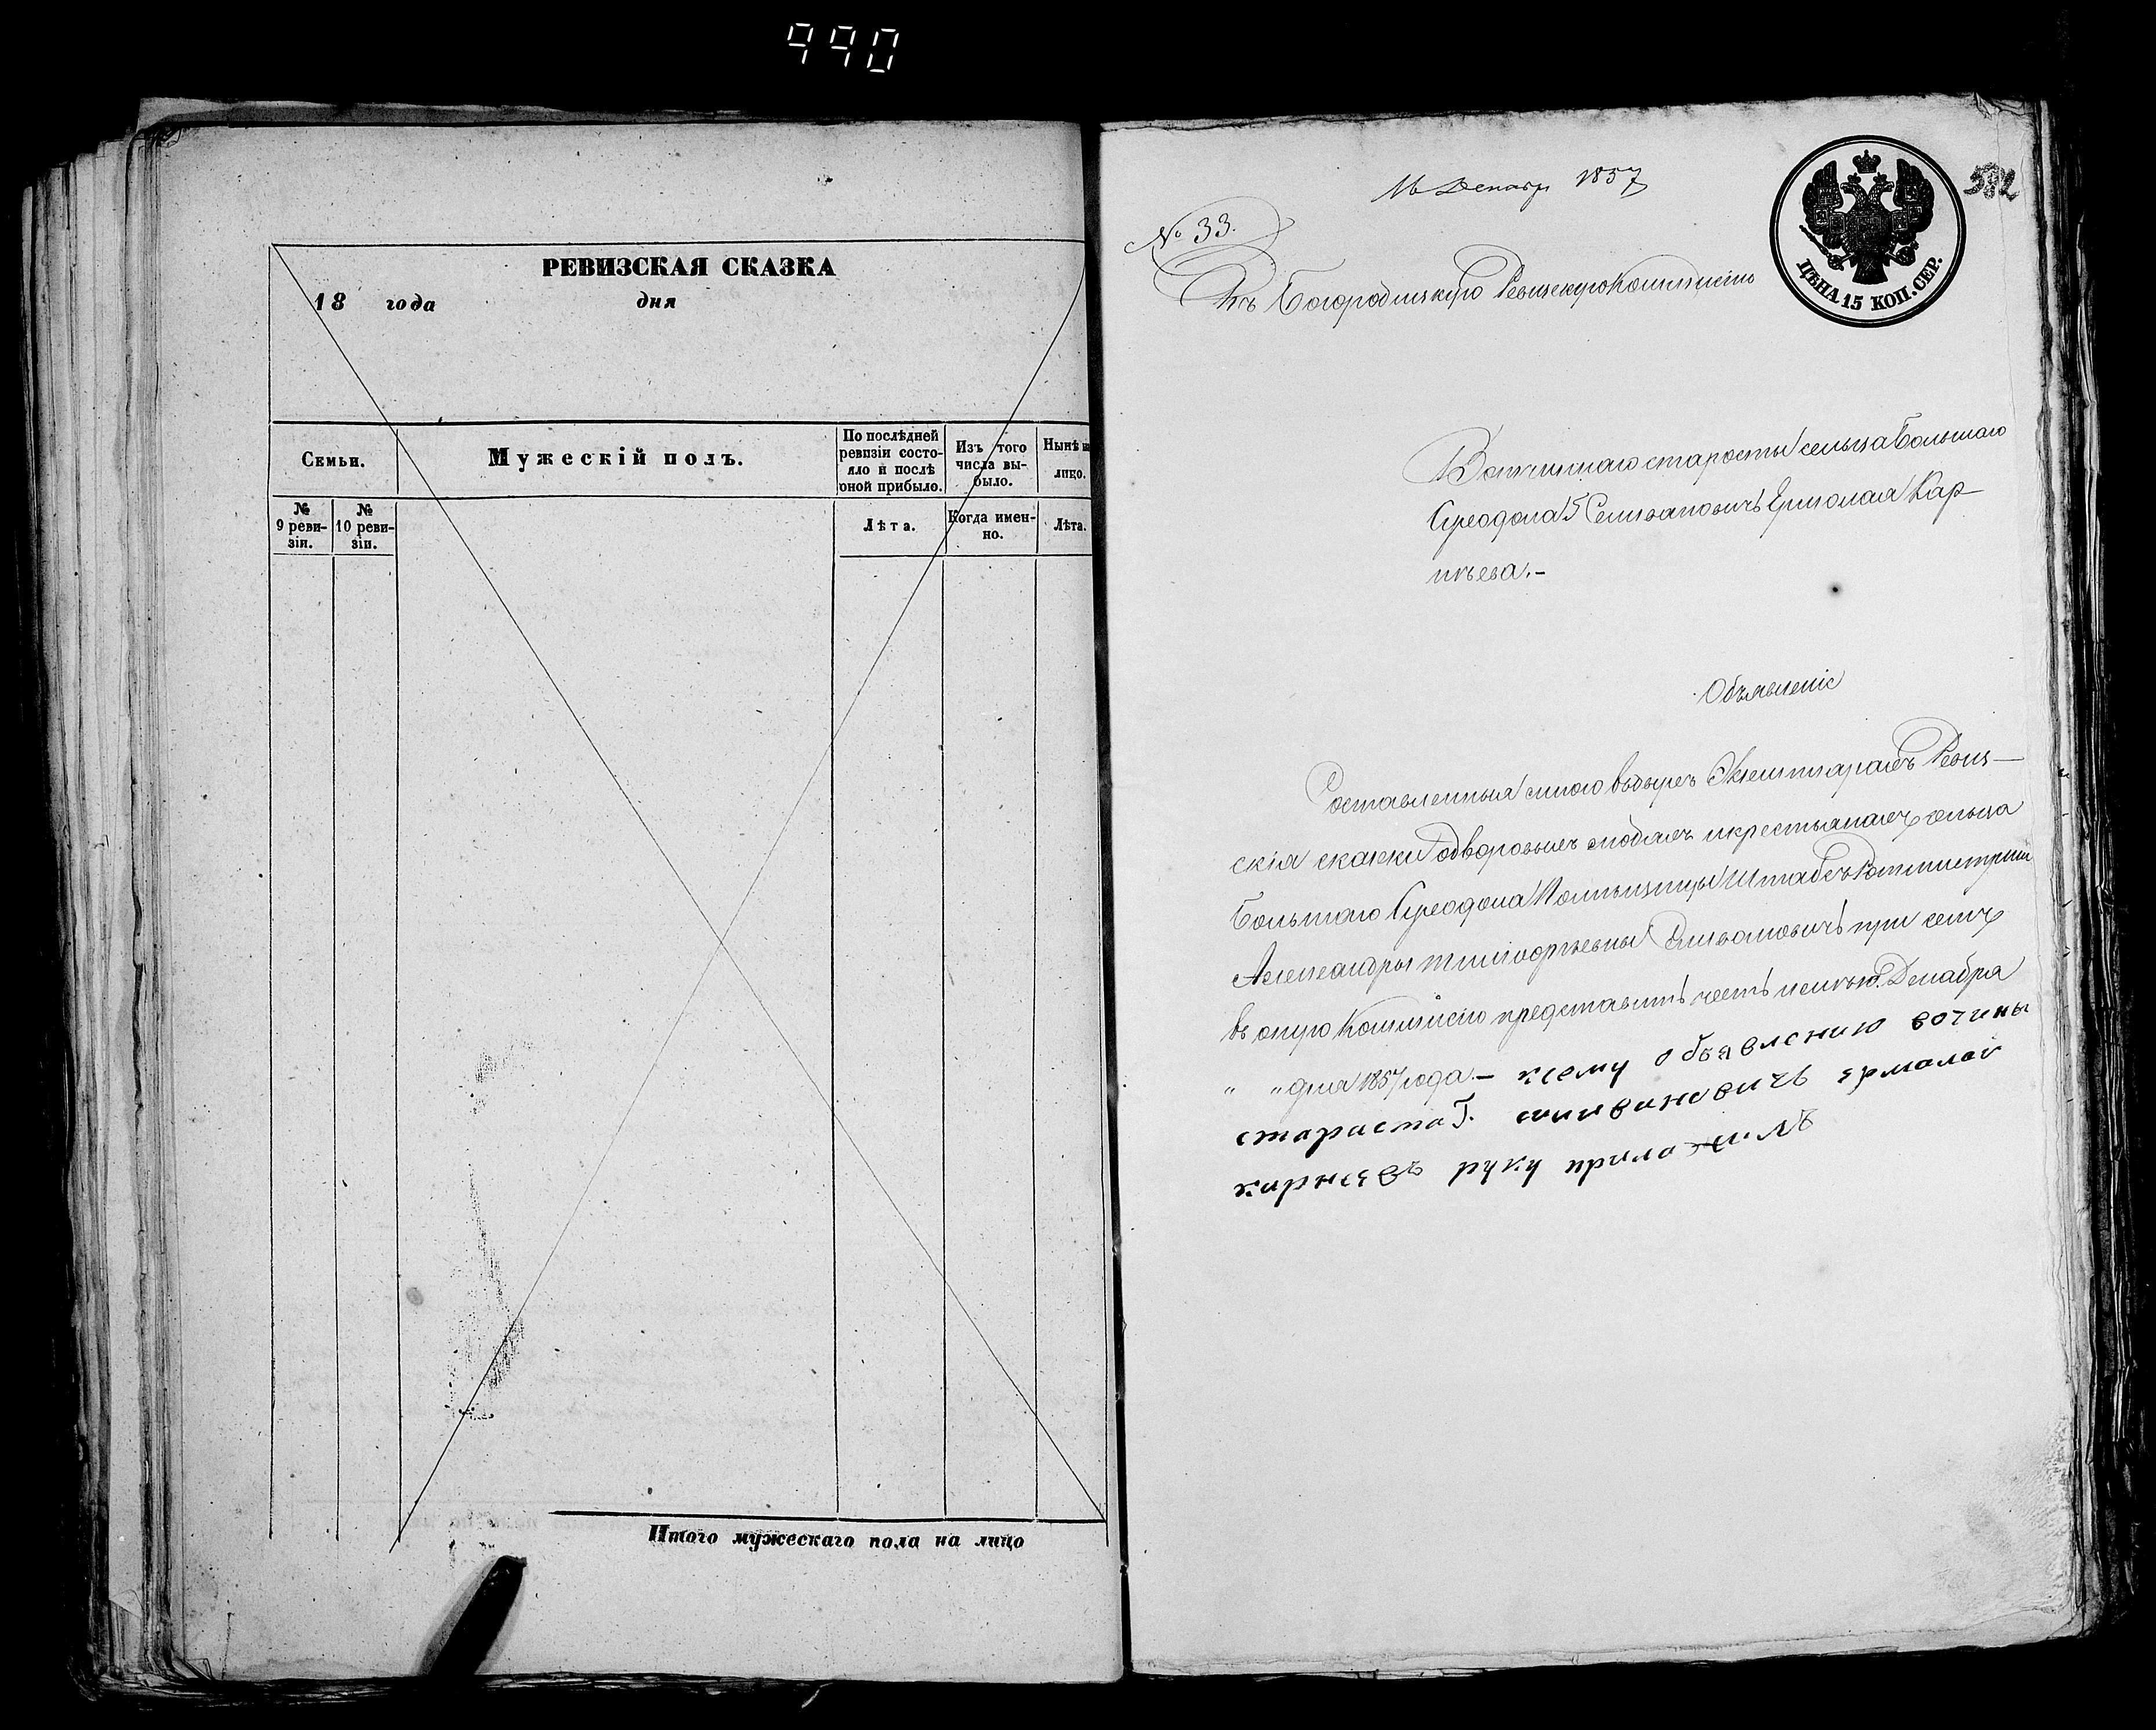 990
РЕВИЗСКАЯ СКАЗКА
18 года дня
Семьи.
Мужескій полъ.
По послѣдней ревизіи состояло и послѣ оной прибыло.
Изъ того числа выбыло.
Нынѣ на лицо.
№ 9 ревизіи.
№ 10 ревизіи.
Лѣта.
Когда именно.
Лѣта.
Итого мужескаго пола на лицо
16 Декабр 1857
582
№ 33.
ЦѢНА 15 КОП. СЕР.
Въ Богородицкую Ревизскую Коммисію
Вотчиннаго старосты сельца Большаго
Суходола Г. Селивановичь Ермолая Кар
нѣева.-
Объявленіе
Составленныя мною въ двухъ Экземплярахъ Ревиз-
скія сказки о дворовыхъ людяхъ и крестьянахъ сельца
Большаго Суходола Помѣщицы Штабсъ Ротмистрши
Александры Селивановичь при семъ
въ оную Коммисію представить честь имею. Декабря
" " дня 1857 года.- ксему объявлению вочины
стараста Г. ермолай
карнеевъ руку приложилъ